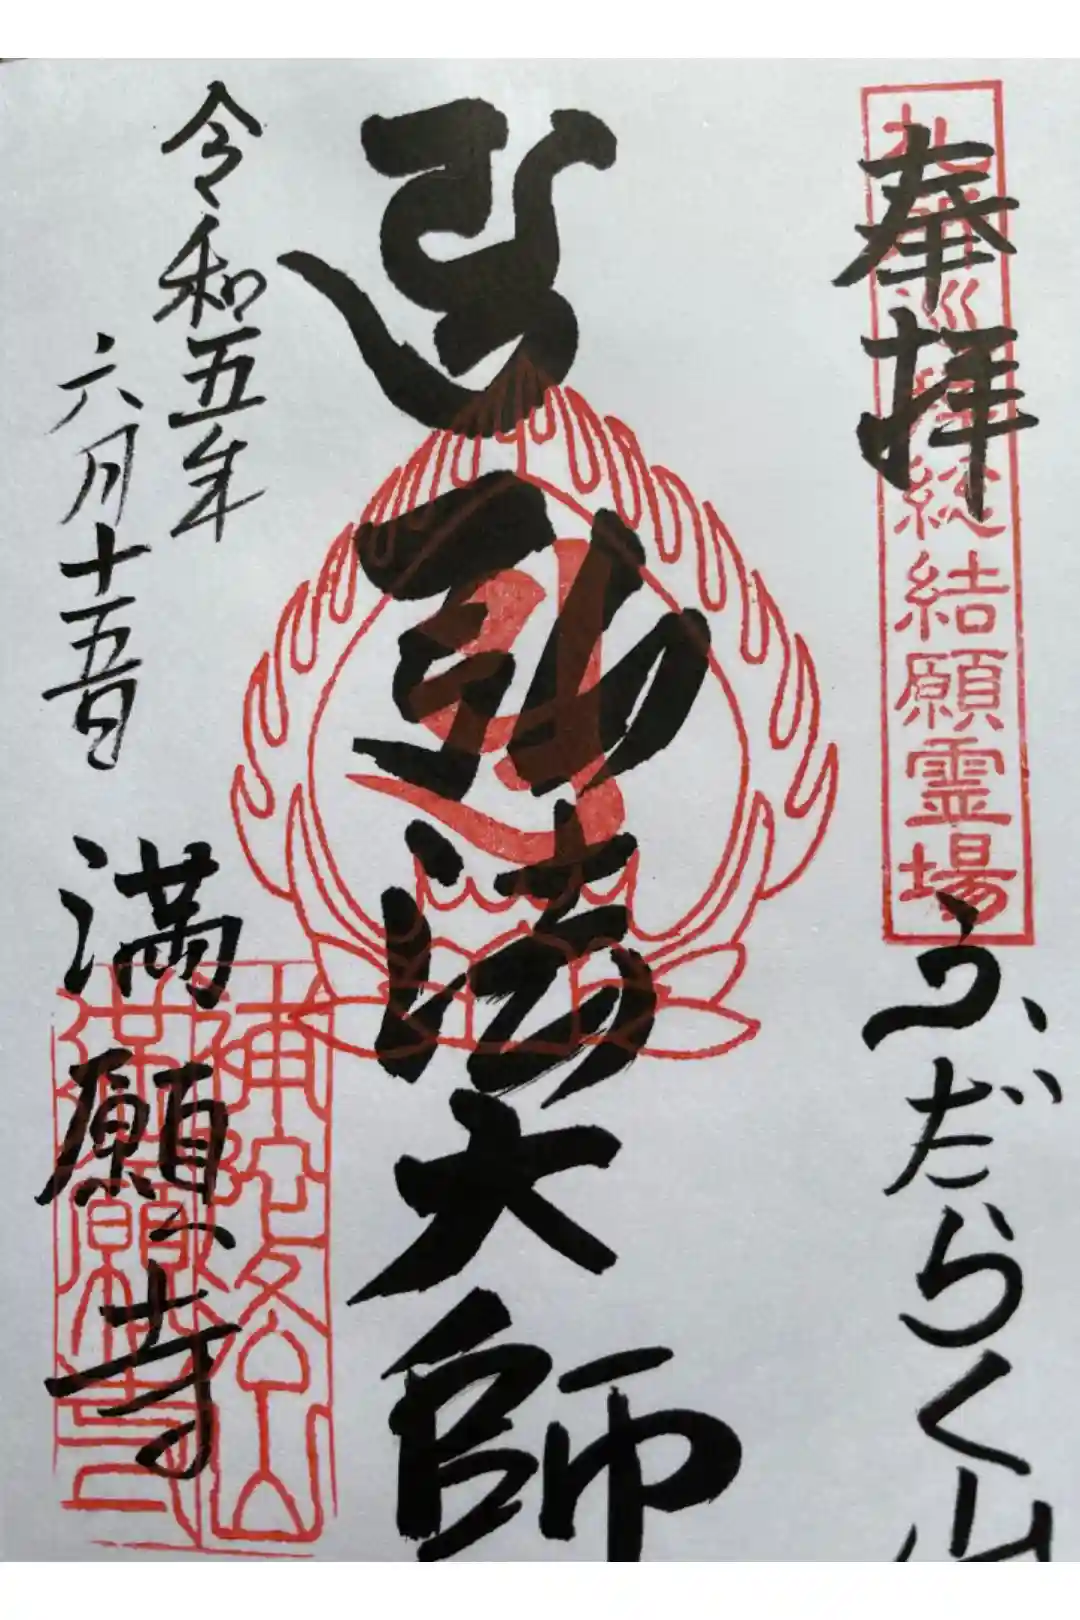 奉拝
巡
総結願霊場
ふだらく山
弘法大師
令和五年
六月十五日
満願寺